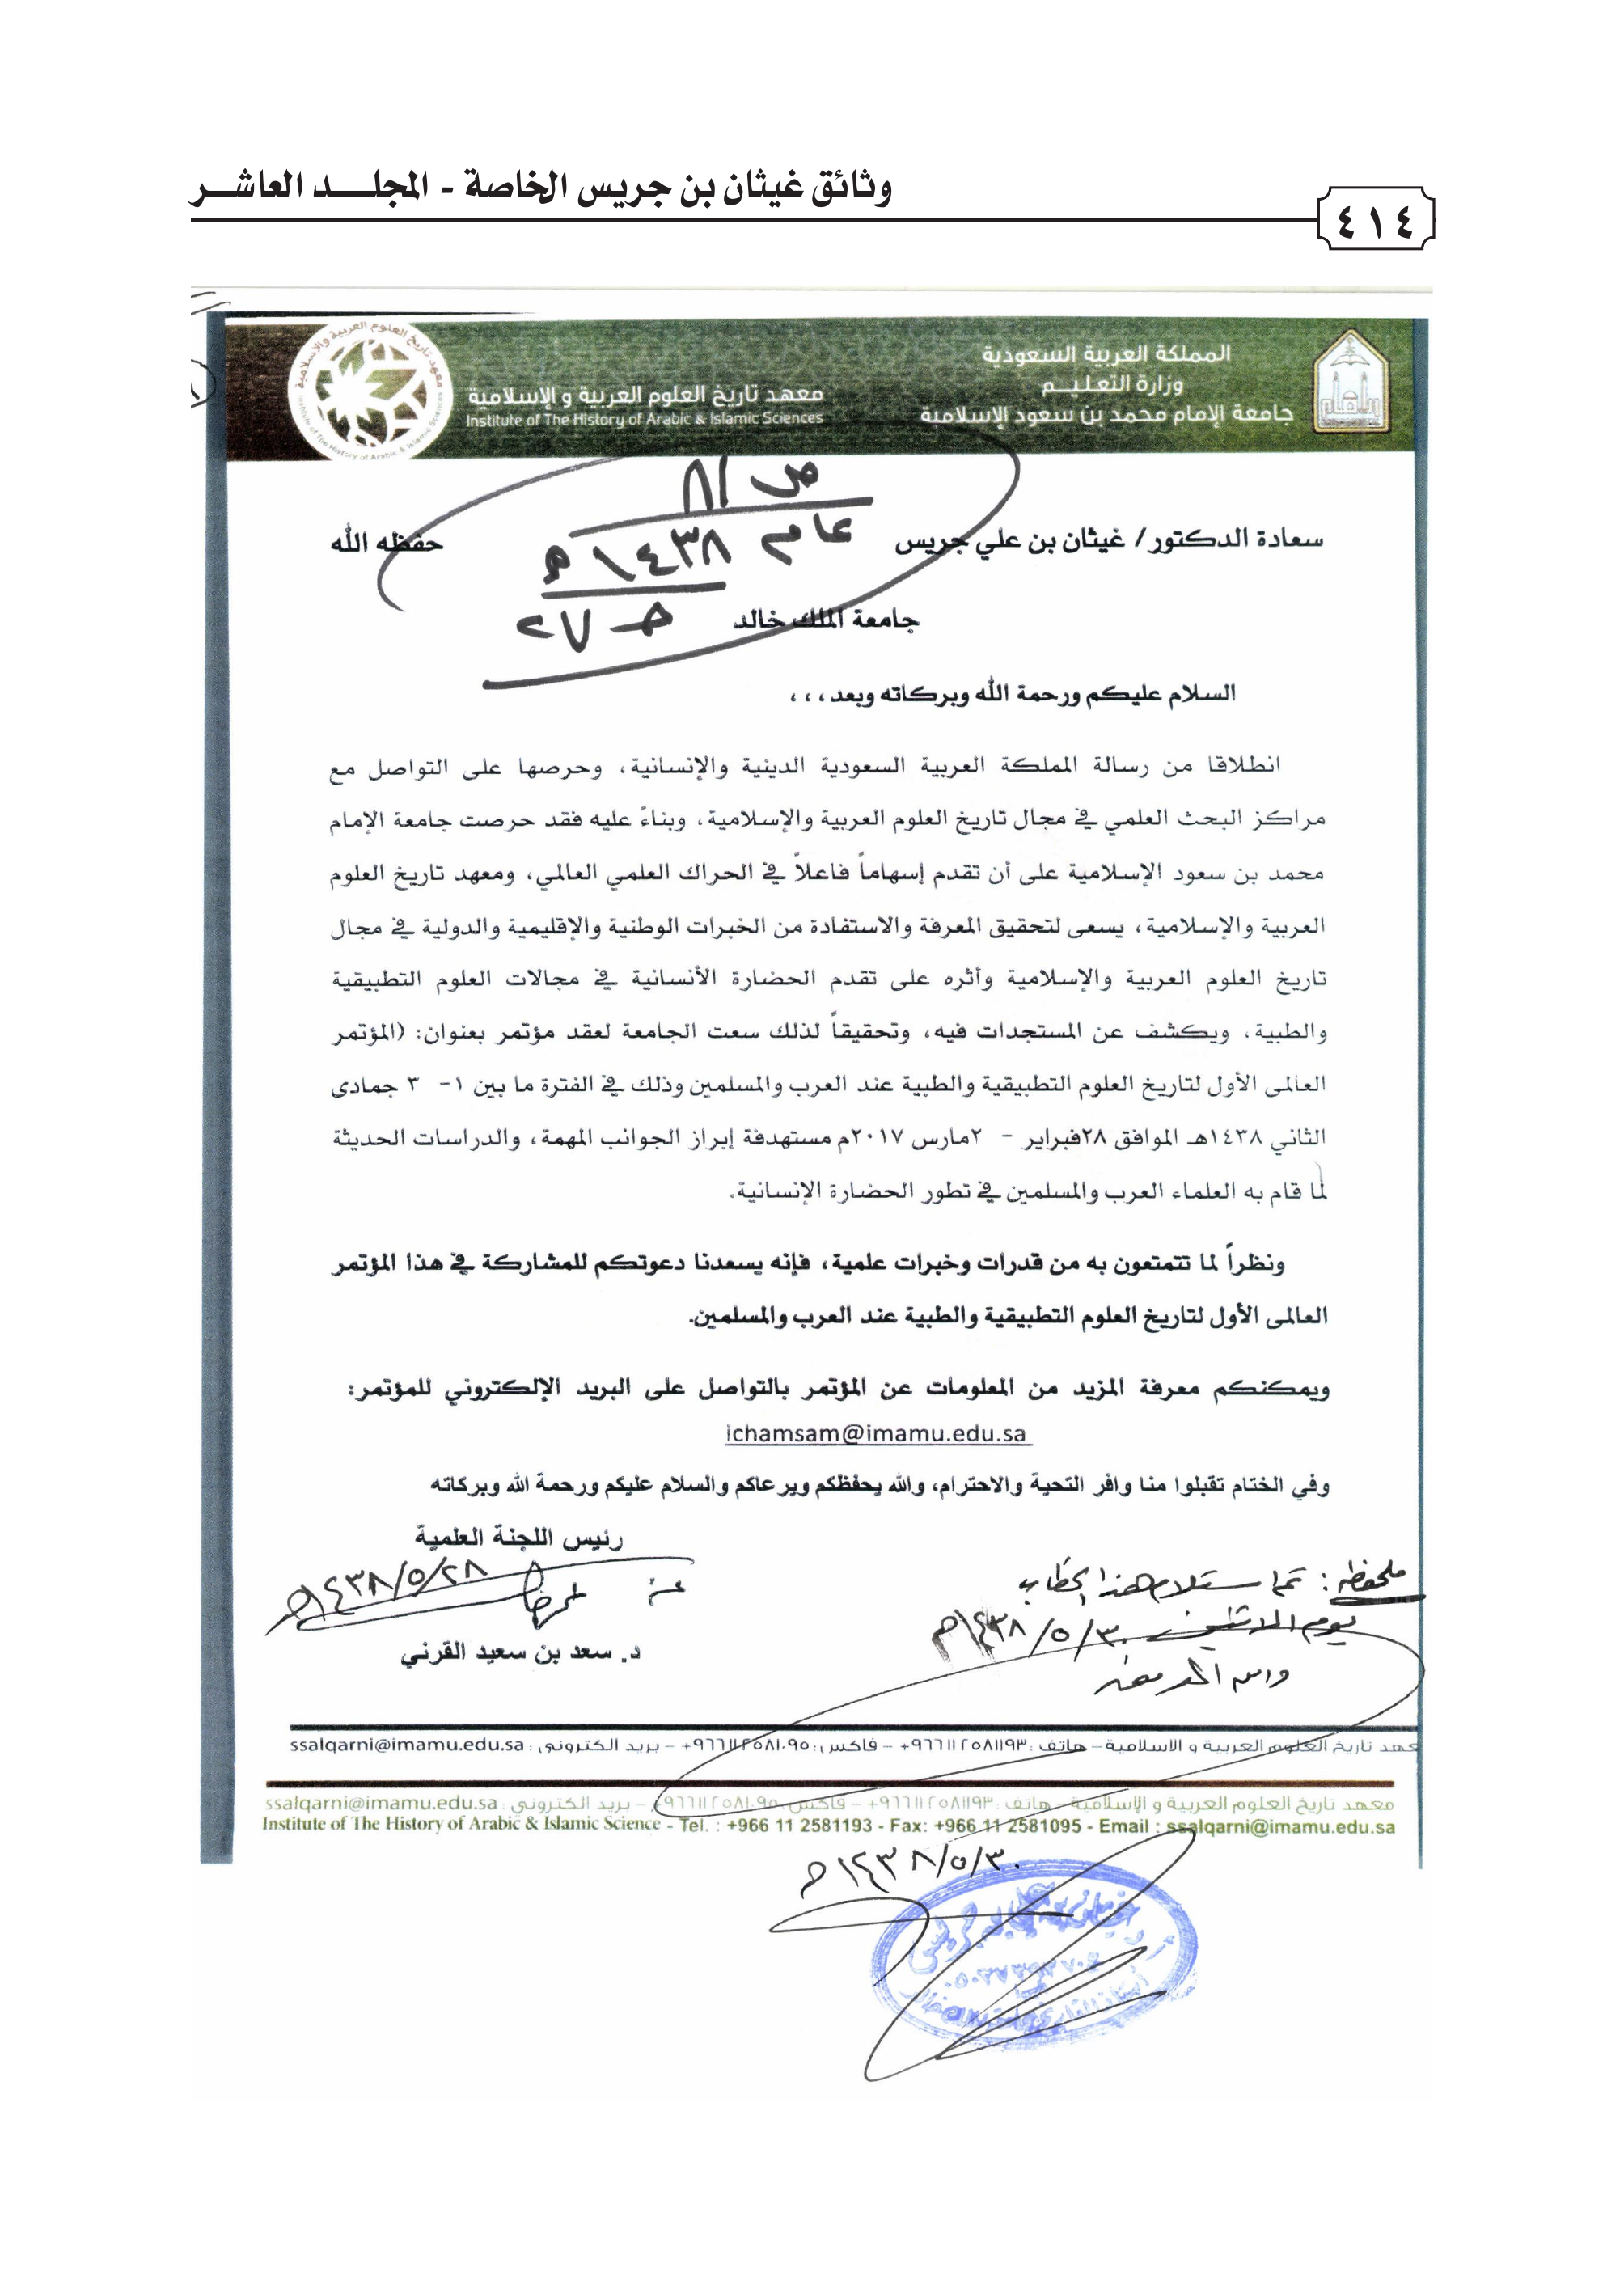 وثائق غيثان بن جريس الخاصة - المجلـــد العاشـــر
٤١٤
المملكة العربية السعودية
وزارة التعليـــم
جامعة الإمام محمد بن سعود الإسلامية
معهد تاريخ العلوم العربية و الإسلامية
Institute of The History of Arabic & Islamic Sciences
معهد تاريخ العلوم العربية والإسلامية
Institute of The History of Arabic & Islamic Sciences
ص ٨١
عام ١٤٣٨هـ
حـ ٢٧
سعادة الدكتور/ غيثان بن علي جريس حفظه الله
جامعة الملك خالد
السلام عليكم ورحمة الله وبركاته وبعد ، ، ،
انطلاقا من رسالة المملكة العربية السعودية الدينية والإنسانية، وحرصها على التواصل مع
مراكز البحث العلمي في مجال تاريخ العلوم العربية والإسلامية، وبناءً عليه فقد حرصت جامعة الإمام
محمد بن سعود الإسلامية على أن تقدم إسهاماً فاعلاً في الحراك العلمي العالمي، ومعهد تاريخ العلوم
العربية والإسلامية، يسعى لتحقيق المعرفة والاستفادة من الخبرات الوطنية والإقليمية والدولية في مجال
تاريخ العلوم العربية والإسلامية وأثره على تقدم الحضارة الأنسانية في مجالات العلوم التطبيقية
والطبية، ويكشف عن المستجدات فيه، وتحقيقاً لذلك سعت الجامعة لعقد مؤتمر بعنوان: (المؤتمر
العالمى الأول لتاريخ العلوم التطبيقية والطبية عند العرب والمسلمين وذلك في الفترة ما بين ١- ٣ جمادى
الثاني ١٤٣٨هـ الموافق ٢٨فبراير - ٢مارس ٢٠١٧م مستهدفة إبراز الجوانب المهمة، والدراسات الحديثة
لما قام به العلماء العرب والمسلمين في تطور الحضارة الإنسانية.
ونظراً لما تتمتعون به من قدرات وخبرات علمية، فإنه يسعدنا دعوتكم للمشاركة في هذا المؤتمر
العالمى الأول لتاريخ العلوم التطبيقية والطبية عند العرب والمسلمين.
ويمكنكم معرفة المزيد من المعلومات عن المؤتمر بالتواصل على البريد الإلكتروني للمؤتمر:
ichamsam@imamu.edu.sa
وفي الختام تقبلوا منا وافر التحية والاحترام، والله يحفظكم ويرعاكم والسلام عليكم ورحمة الله وبركاته
رئيس اللجنة العلمية
١٤٣٨/٥/٢٨هـ
د. سعد بن سعيد القرني
ملحوظة : تم استلام هذا الخطاب
يوم الاثنين ١٤٣٨/٥/٣٠هـ
عهد تاريخ العلوم العربية و الاسلامية – هاتف : ٩٦٦١١٢٥٨١١٩٣+ – فاكس : ٩٦٦١١٢٥٨١٠٩٥+ – بريد الكتروني : ssalqarni@imamu.edu.sa
معهد تاريخ العلوم العربية و الإسلامية – هاتف : ٩٦٦١١٢٥٨١١٩٣+ – فاكس : ٩٦٦١١٢٥٨١٠٩٥+ – بريد الكتروني : ssalqarni@imamu.edu.sa
Institute of The History of Arabic & Islamic Science - Tel. : +966 11 2581193 - Fax: +966 11 2581095 - Email : ssalqarni@imamu.edu.sa
١٤٣٨/٥/٣٠هـ